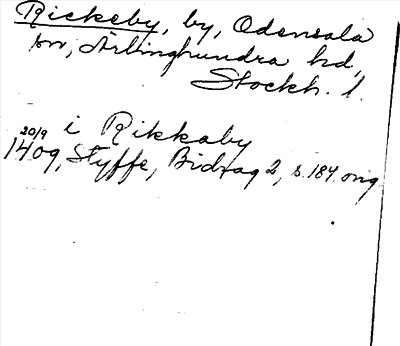 Rickeby, by, Odensala
sn, Ärlinghundra hd,
Stockh. l.
i Rikkaby
20/9 1409, Styffe, Bidrag 2, s. 184. orig